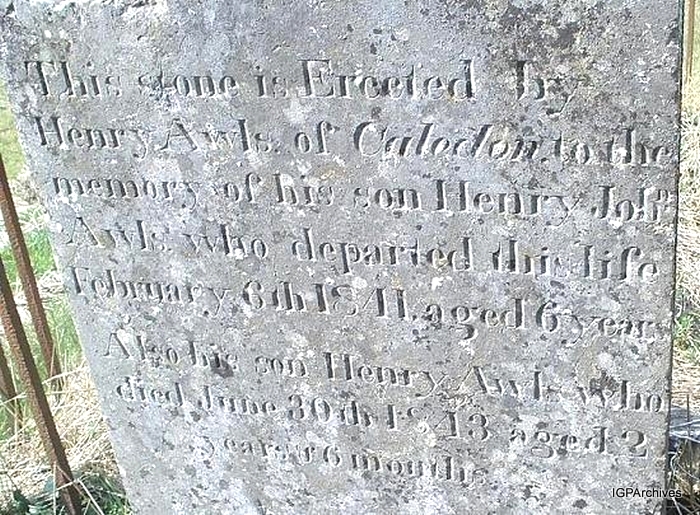 This stone is Erected by
Henry Awls. of Caledon, to the
memory of his son Henry Johⁿ
Awls who departed this life
February 6th 1841. aged 6 year
Also his son Henry Awls who
died June 30th 1843 aged 2
years & 6 months
IGPArchives